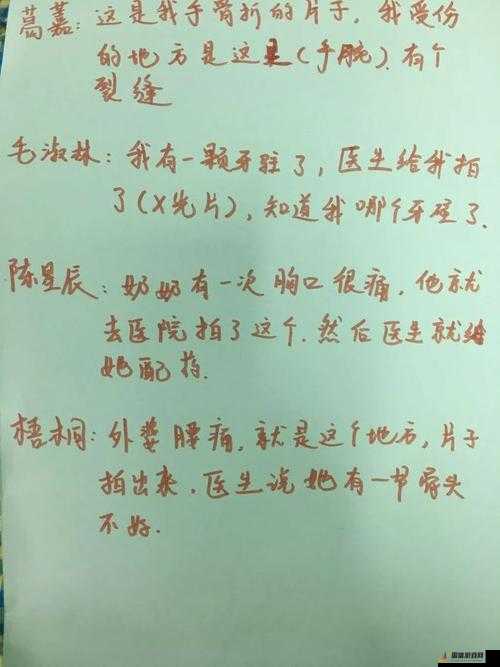 葛嘉：这是我手骨折的片子，我受份
的地方是这里（手腕）.有个
裂缝
毛淑林：我有一颗牙蛀了，医生给我拍
了（X光片），知道我哪个牙碎了.
陈星辰：奶奶有一次胸口很痛，他就
去医院拍了这个.然后医生就给
她配药.
梧桐：外婆腰痛，就是这个地方，片子
拍出来，医生说她有一节骨头
不好.